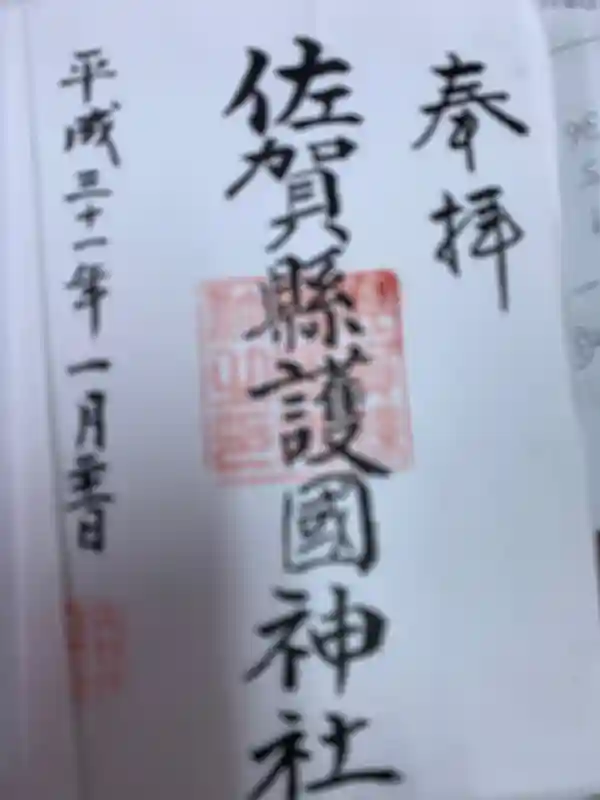 奉拝
佐賀縣護國神社
平成三十一年一月